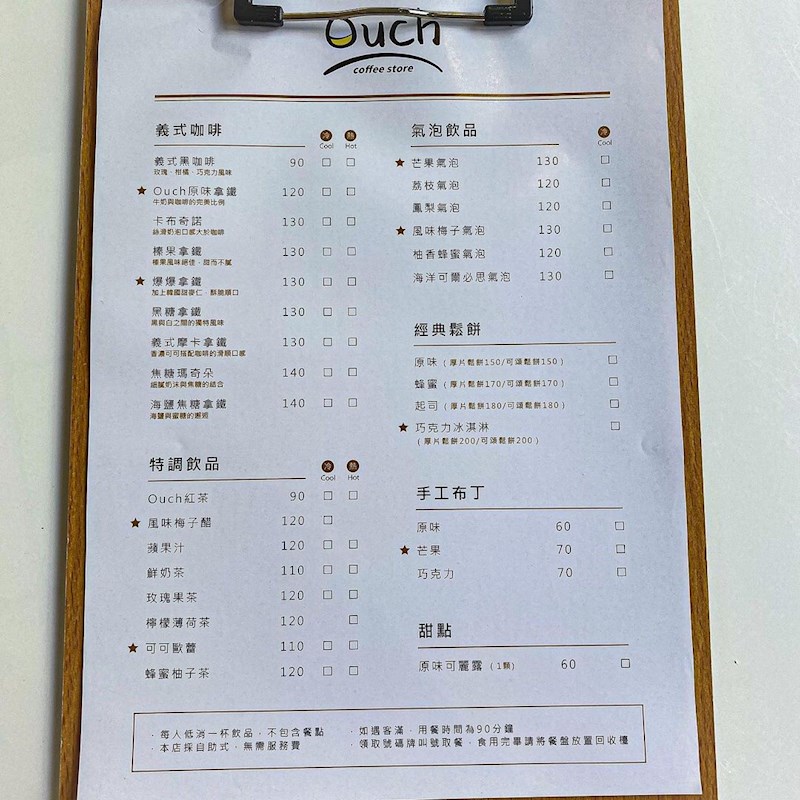 Ouch
coffee store
義式咖啡
冷 熱
Cool Hot
義式黑咖啡 90 □ □
玫瑰、柑橘、巧克力風味
★ Ouch原味拿鐵 120 □ □
牛奶與咖啡的完美比例
卡布奇諾 130 □ □
絲滑奶泡口感大於咖啡
榛果拿鐵 130 □ □
榛果風味絕佳，甜而不膩
★ 爆爆拿鐵 130 □ □
加上韓國甜麥仁，酥脆順口
黑糖拿鐵 130 □ □
黑與白之間的獨特風味
義式摩卡拿鐵 130 □ □
香濃可可搭配咖啡的滑順口感
焦糖瑪奇朵 140 □ □
細膩奶沫與焦糖的結合
海鹽焦糖拿鐵 140 □ □
海鹽與蜜糖的邂逅
特調飲品
冷 熱
Cool Hot
Ouch紅茶 90 □ □
★ 風味梅子醋 120 □
蘋果汁 120 □ □
鮮奶茶 110 □ □
玫瑰果茶 120 □ □
檸檬薄荷茶 120 □
★ 可可歐蕾 110 □ □
蜂蜜柚子茶 120 □ □
氣泡飲品
冷
Cool
★ 芒果氣泡 130 □
荔枝氣泡 120 □
鳳梨氣泡 120 □
★ 風味梅子氣泡 130 □
柚香蜂蜜氣泡 120 □
海洋可爾必思氣泡 130 □
經典鬆餅
原味（厚片鬆餅150/可頌鬆餅150） □
蜂蜜（厚片鬆餅170/可頌鬆餅170） □
起司（厚片鬆餅180/可頌鬆餅180） □
★ 巧克力冰淇淋 □
（厚片鬆餅200/可頌鬆餅200）
手工布丁
原味 60 □
★ 芒果 70 □
巧克力 70 □
甜點
原味可麗露（1顆） 60 □
．每人低消一杯飲品，不包含餐點
．本店採自助式，無需服務費
．如遇客滿，用餐時間為90分鐘
．領取號碼牌叫號取餐，食用完畢請將餐盤放置回收檯